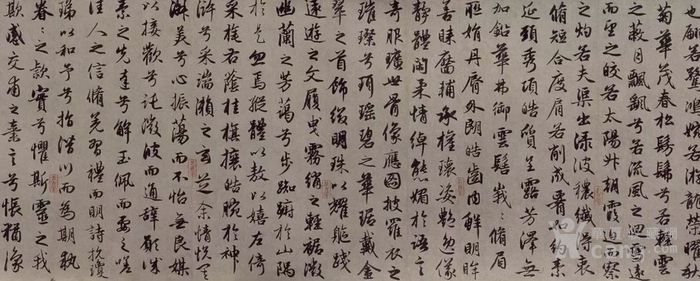 也翩若驚鴻婉若遊龍榮曜秋
菊華茂春松髣髴兮若輕雲
之蔽月飄飄兮若流風之迴雪遠
而望之皎若太陽升朝霞迫而察
之灼若夫渠出淥波穠纖得衷
脩短合度肩若削成腰如約素
延頸秀項皓質呈露芳澤無
加鉛華弗御雲髻峩峩脩眉
聯娟丹脣外朗皓齒內鮮明眸
善睞靨輔承權瓌姿艷逸儀
靜體閑柔情綽態媚於語言
奇服曠世骨像應圖披羅衣之
璀璨兮珥瑤碧之華琚戴金
翠之首飾綴明珠以耀軀踐
遠遊之文履曳霧綃之輕裾微
幽蘭之芳藹兮步踟躕於山隅
於是忽焉縱體以敖以嬉左倚
采旄右蔭桂旗攘皓腕於神
滸兮采湍瀨之玄芝余情悅其
淑美兮心振蕩而不怡無良媒
以接歡兮託微波而通辭願誠
素之先達兮解玉佩而要之嗟
佳人之信脩羌習禮而明詩抗瓊
珶以和予兮指潛川而為期執
眷眷之款實兮懼斯靈之我
欺感交甫之棄言兮悵猶豫